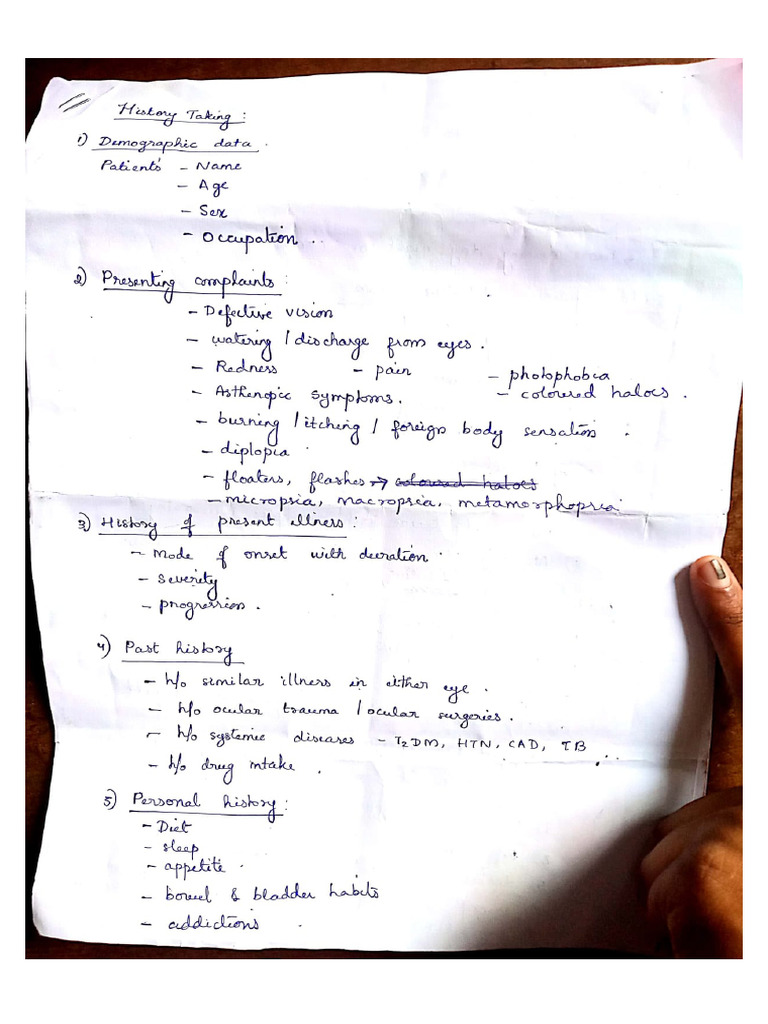 History Taking :
1) Demographic data .
Patients - Name
- Age
- Sex
- Occupation ..
2) Presenting complaints :
- Defective vision
- watering / discharge from eyes .
- Redness - pain - photophobia
- Asthenopic symptoms . - coloured haloes .
- burning / itching / foreign body sensation .
- diplopia .
- floaters, flashes → coloured haloes
- micropsia, macropsia, metamorphopsia
3) History of present illness :
- Mode of onset with duration .
- severity
- progression .
4) Past history
- h/o similar illness in either eye .
- h/o ocular trauma / ocular surgeries .
- h/o systemic diseases - T2DM, HTN, CAD, TB ...
- h/o drug intake .
5) Personal history :
- Diet
- sleep
- appetite .
- bowel & bladder habits
- addictions .